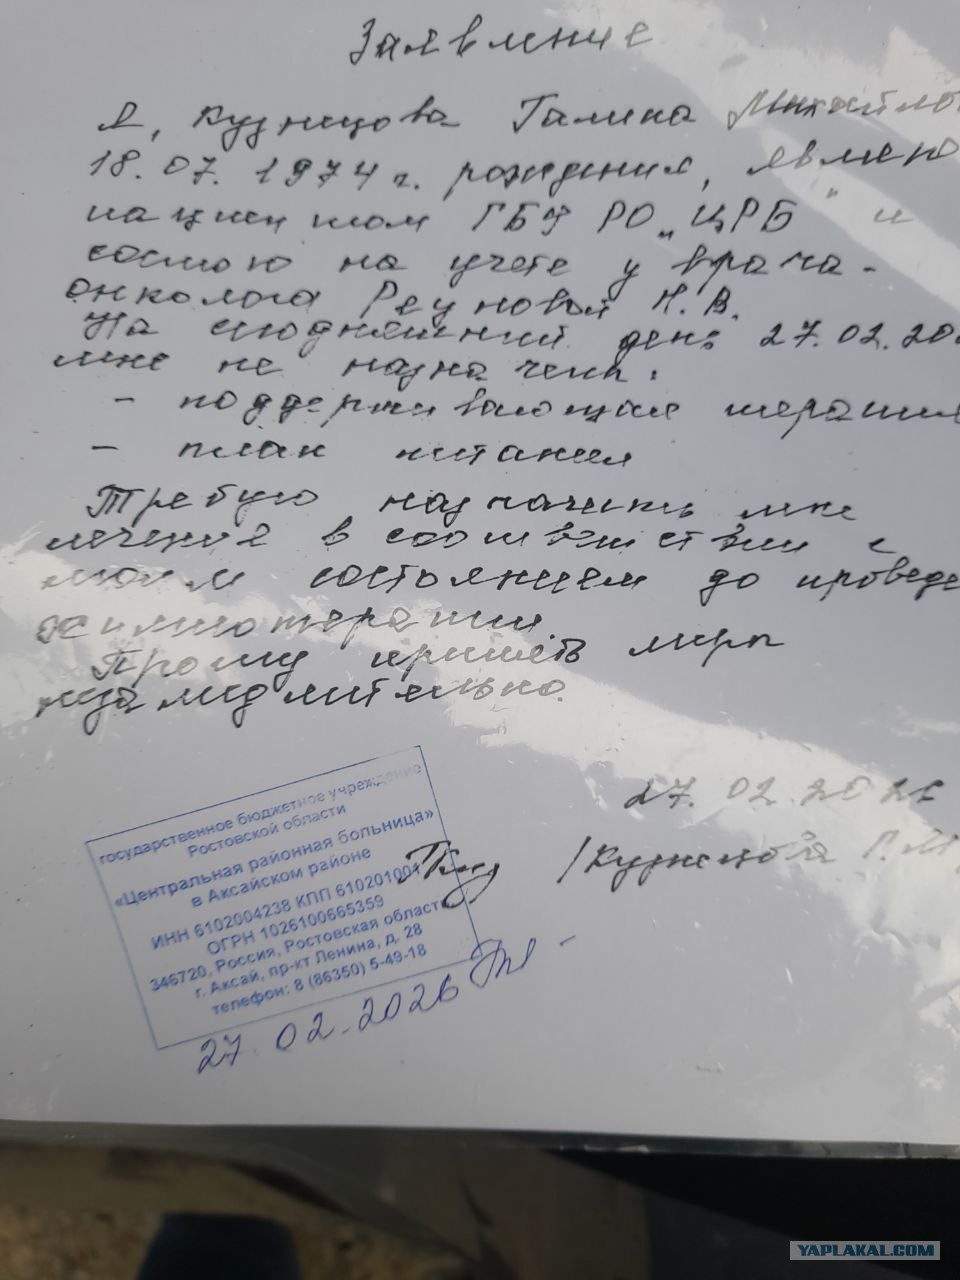 Заявление
Я, Кузнецова Галина Михайло
18.07.1974 г. рождения, являю
пациентом ГБУ РО „ЦРБ" и
состою на учете у врача-
онколога Реуновой Н.В.
На сегодняшний день 27.02.20
мне не назначены:
- поддерживающая терапия
- план питания
Требую назначить мне
лечение в соответствии с
моим состоянием до проведе
химиотерапии.
Прошу принять меры
незамедлительно.
27.02.2026
/Кузнецова Г.М
государственное бюджетное учреждение
Ростовской области
«Центральная районная больница»
в Аксайском районе
ИНН 6102004238 КПП 610201001
ОГРН 1026100665359
346720, Россия, Ростовская область
г. Аксай, пр-кт Ленина, д. 28
телефон: 8 (86350) 5-49-18
27.02.2026
YAPLAKAL.COM